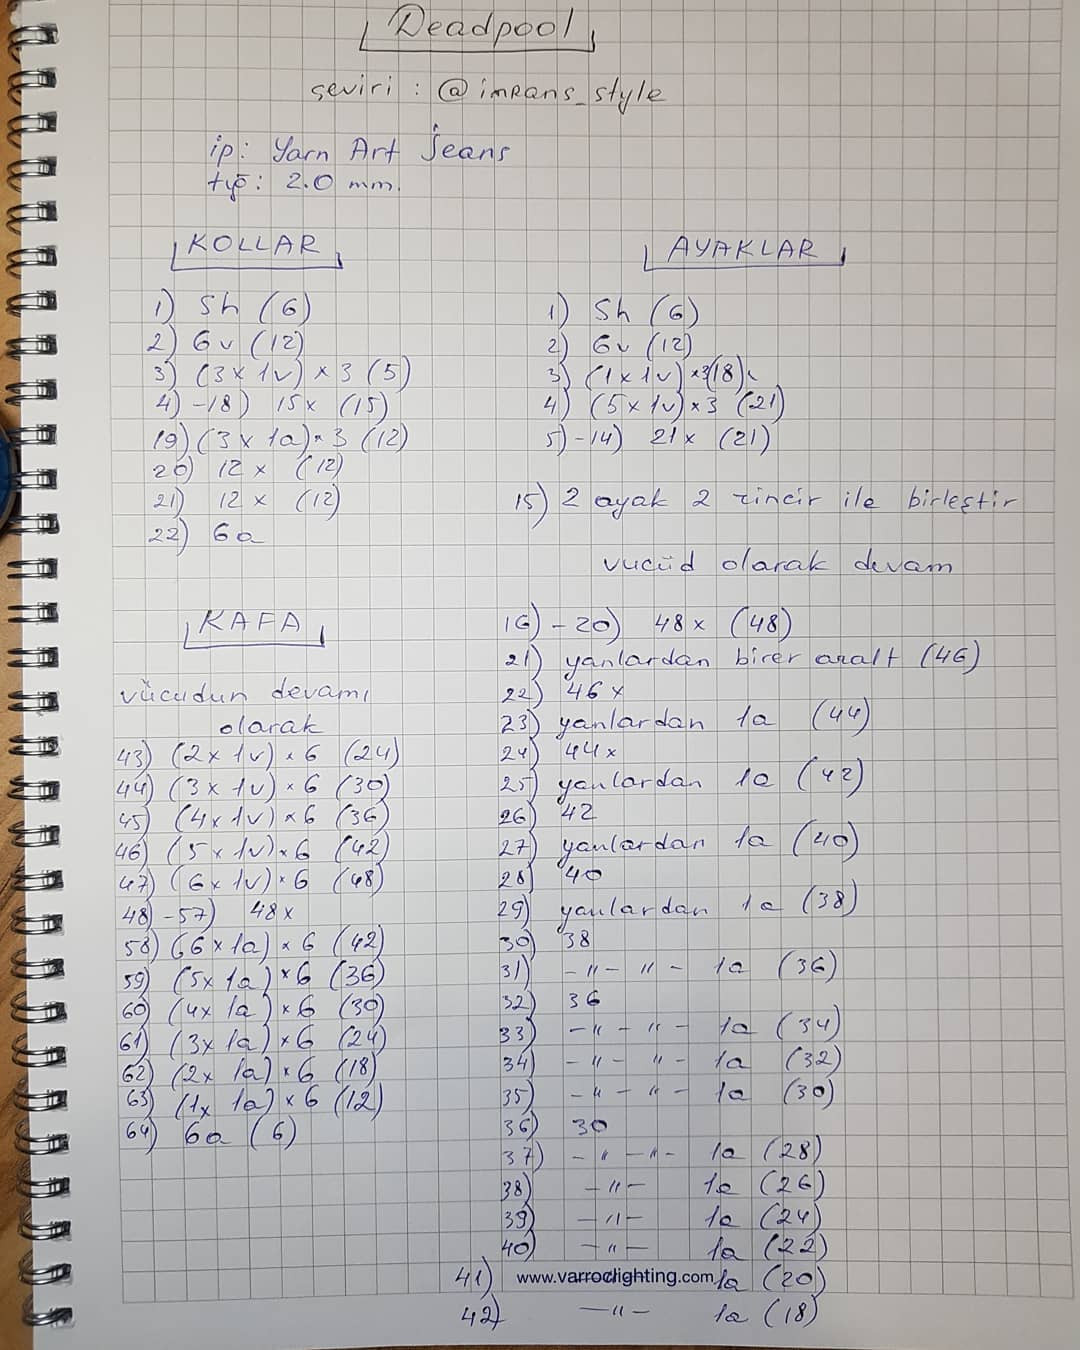 Deadpool
çeviri : @imRans_style
ip: Yarn Art Jeans
tığ: 2.0 mm.
KOLLAR
1) Sh (6)
2) 6v (12)
3) (3x 1v) x 3 (5)
4) -18) 15x (15)
19) (3x 1a) x 3 (12)
20) 12 x (12)
21) 12 x (12)
22) 6a
AYAKLAR
1) Sh (6)
2) 6v (12)
3) (1x 1v) x (18)
4) (5x 1v) x 3 (21)
5) -14) 21x (21)
15) 2 ayak 2 zincir ile birleştir
vucüd olarak devam
16) - 20) 48x (48)
21) yanlardan birer azalt (46)
22) 46x
23) yanlardan 1a (44)
24) 44x
25) yanlardan 1a (42)
26) 42
27) yanlardan 1a (40)
28) 40
29) yanlardan 1a (38)
30) 38
31) -"- "- 1a (36)
32) 36
33) -"- "- 1a (34)
34) -"- "- 1a (32)
35) -"- "- 1a (30)
36) 30
37) -"-"- 1a (28)
38) -"- 1a (26)
39) -"- 1a (24)
40) -"- 1a (22)
41) www.varroclighting.com 1a (20)
42) -"- 1a (18)
KAFA
vücudun devamı
olarak
43) (2x 1v) x 6 (24)
44) (3x 1v) x 6 (30)
45) (4x 1v) x 6 (36)
46) (5x 1v) x 6 (42)
47) (6x 1v) x 6 (48)
48) -57) 48x
58) (6x 1a) x 6 (42)
59) (5x 1a) x 6 (36)
60) (4x 1a) x 6 (30)
61) (3x 1a) x 6 (24)
62) (2x 1a) x 6 (18)
63) (1x 1a) x 6 (12)
64) 6a (6)